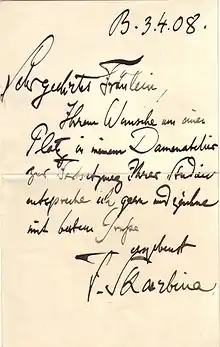 B. 3.4.08.
Sehr geehrtes Fräulein,
Ihrem Wunsche um einen
Platz in meinem Damenatelier
zur Fortsetzung Ihrer Studien
entspreche ich gern und zeichne
mit bestem Gruße
ergebenst
F. Skarbina